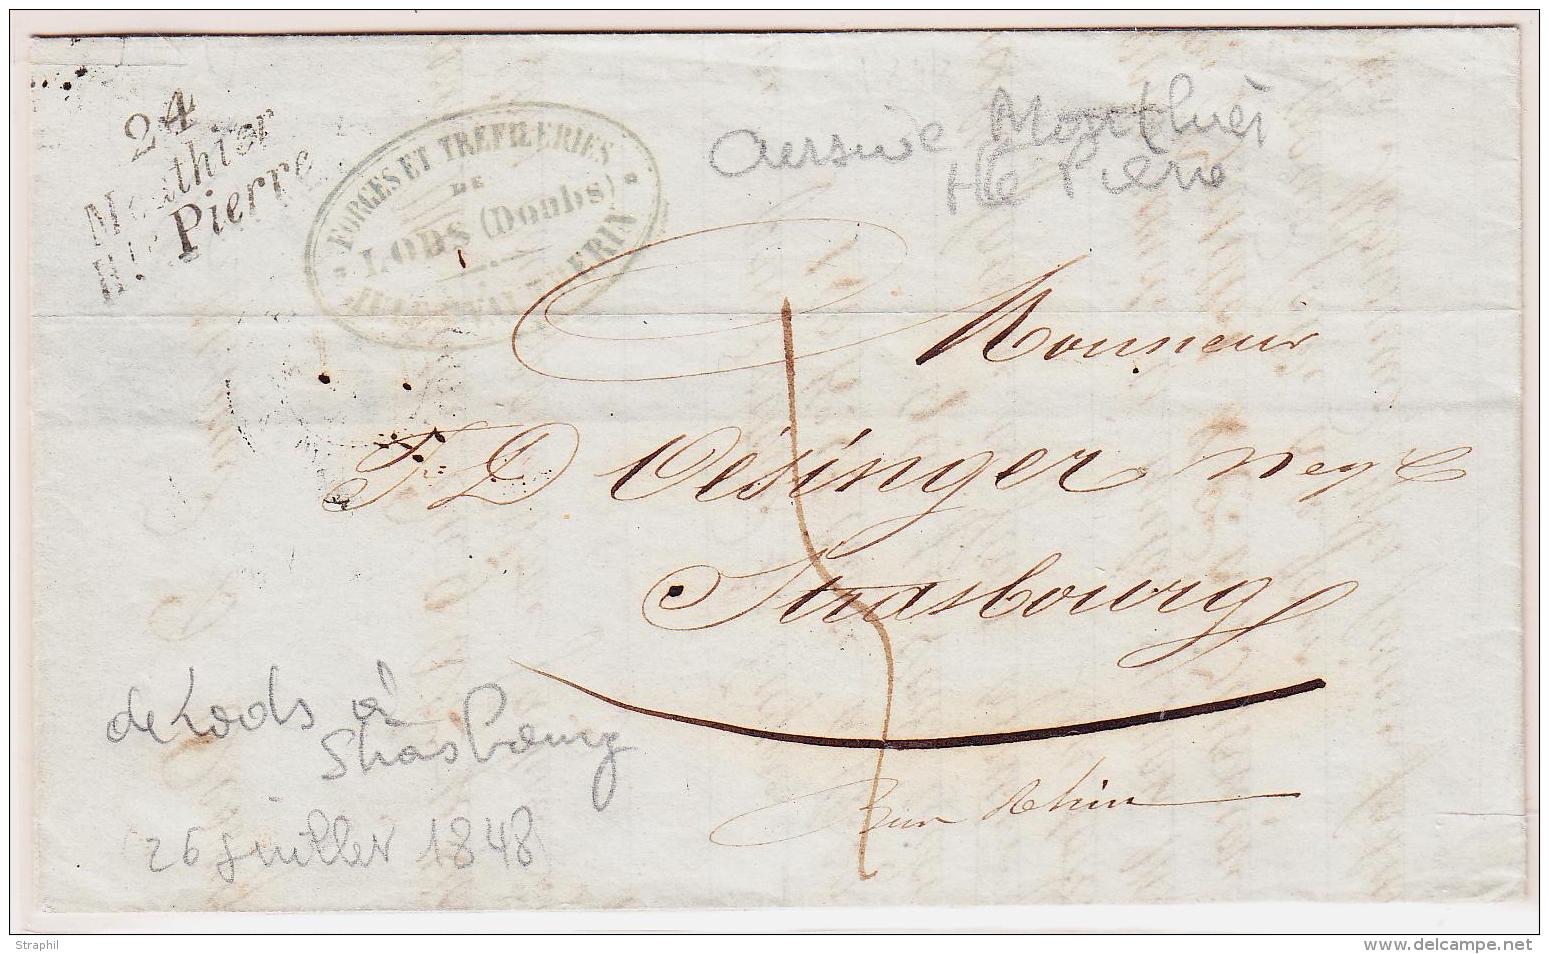 24
Mouthier
Hte Pierre
FORGES ET TRÉFILERIES
DE
LODS (Doubs)
cursive Mouthier
Hte Pierre
Monsieur
F. D. Oesinger negt
Strasbourg
Bas Rhin
de Lods à
Strasbourg
26 juillet 1848
Straphil
www.delcampe.net